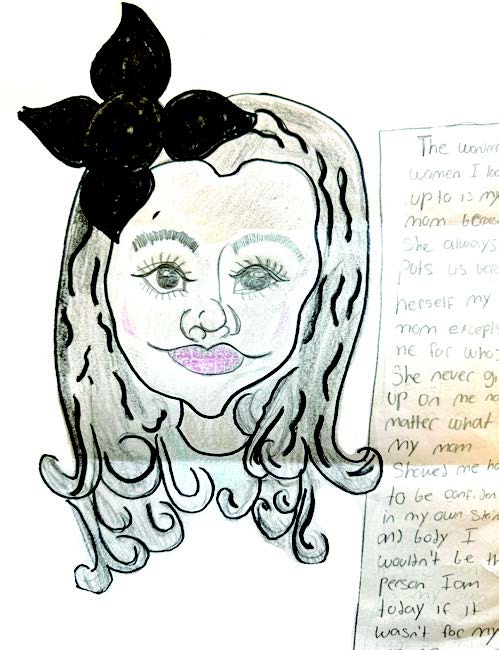 The
women I loo
up to is my
mom becau
She always
puts us befo
herself my
mom excepts
me for who
She never gi
up on me no
matter what
my mom
Showed me ho
to be confiden
in my own Skin
and body I
wouldn't be th
person I am
today if it
wasn't for my